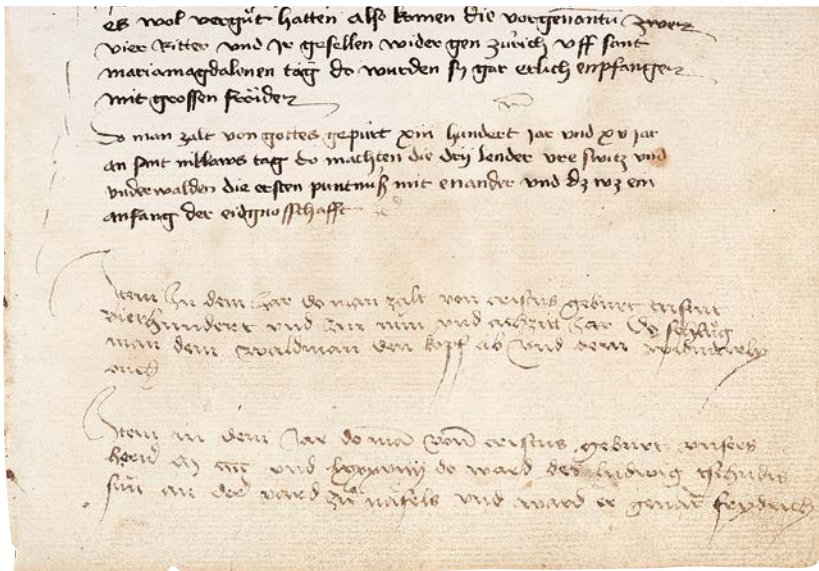 es wol vergůt hatten also komen die vorgenantn zwen
vier Ritter vnd Jr gesellen wider gen zůrich vff sant
mariamagdalenen tag do wurden sy gar erlich enpfangen
mit grossen fröiden
do man zalt von gottes gepürt xiii hundert jar vnd xv jar
an sant niklaws tag do machten die drÿ lender vre switz vnd
vnderwalden die ersten puntnuß mit enander vnd dz wz ein
anfang der eidgnosschafft
Item Jn dem Jar do man zalt von cristus geburt tusent
vierhundert vnd Jm nün vnd achzitt Jar do schlůg
man dem waldman den kopf ab vnd
ouch
Item in dem Jar do mā von cristus geburt vnsers
hern vnd do ward des ludwig tschudis
sun an der vard zů näfels vnd ward er genāt frydrich